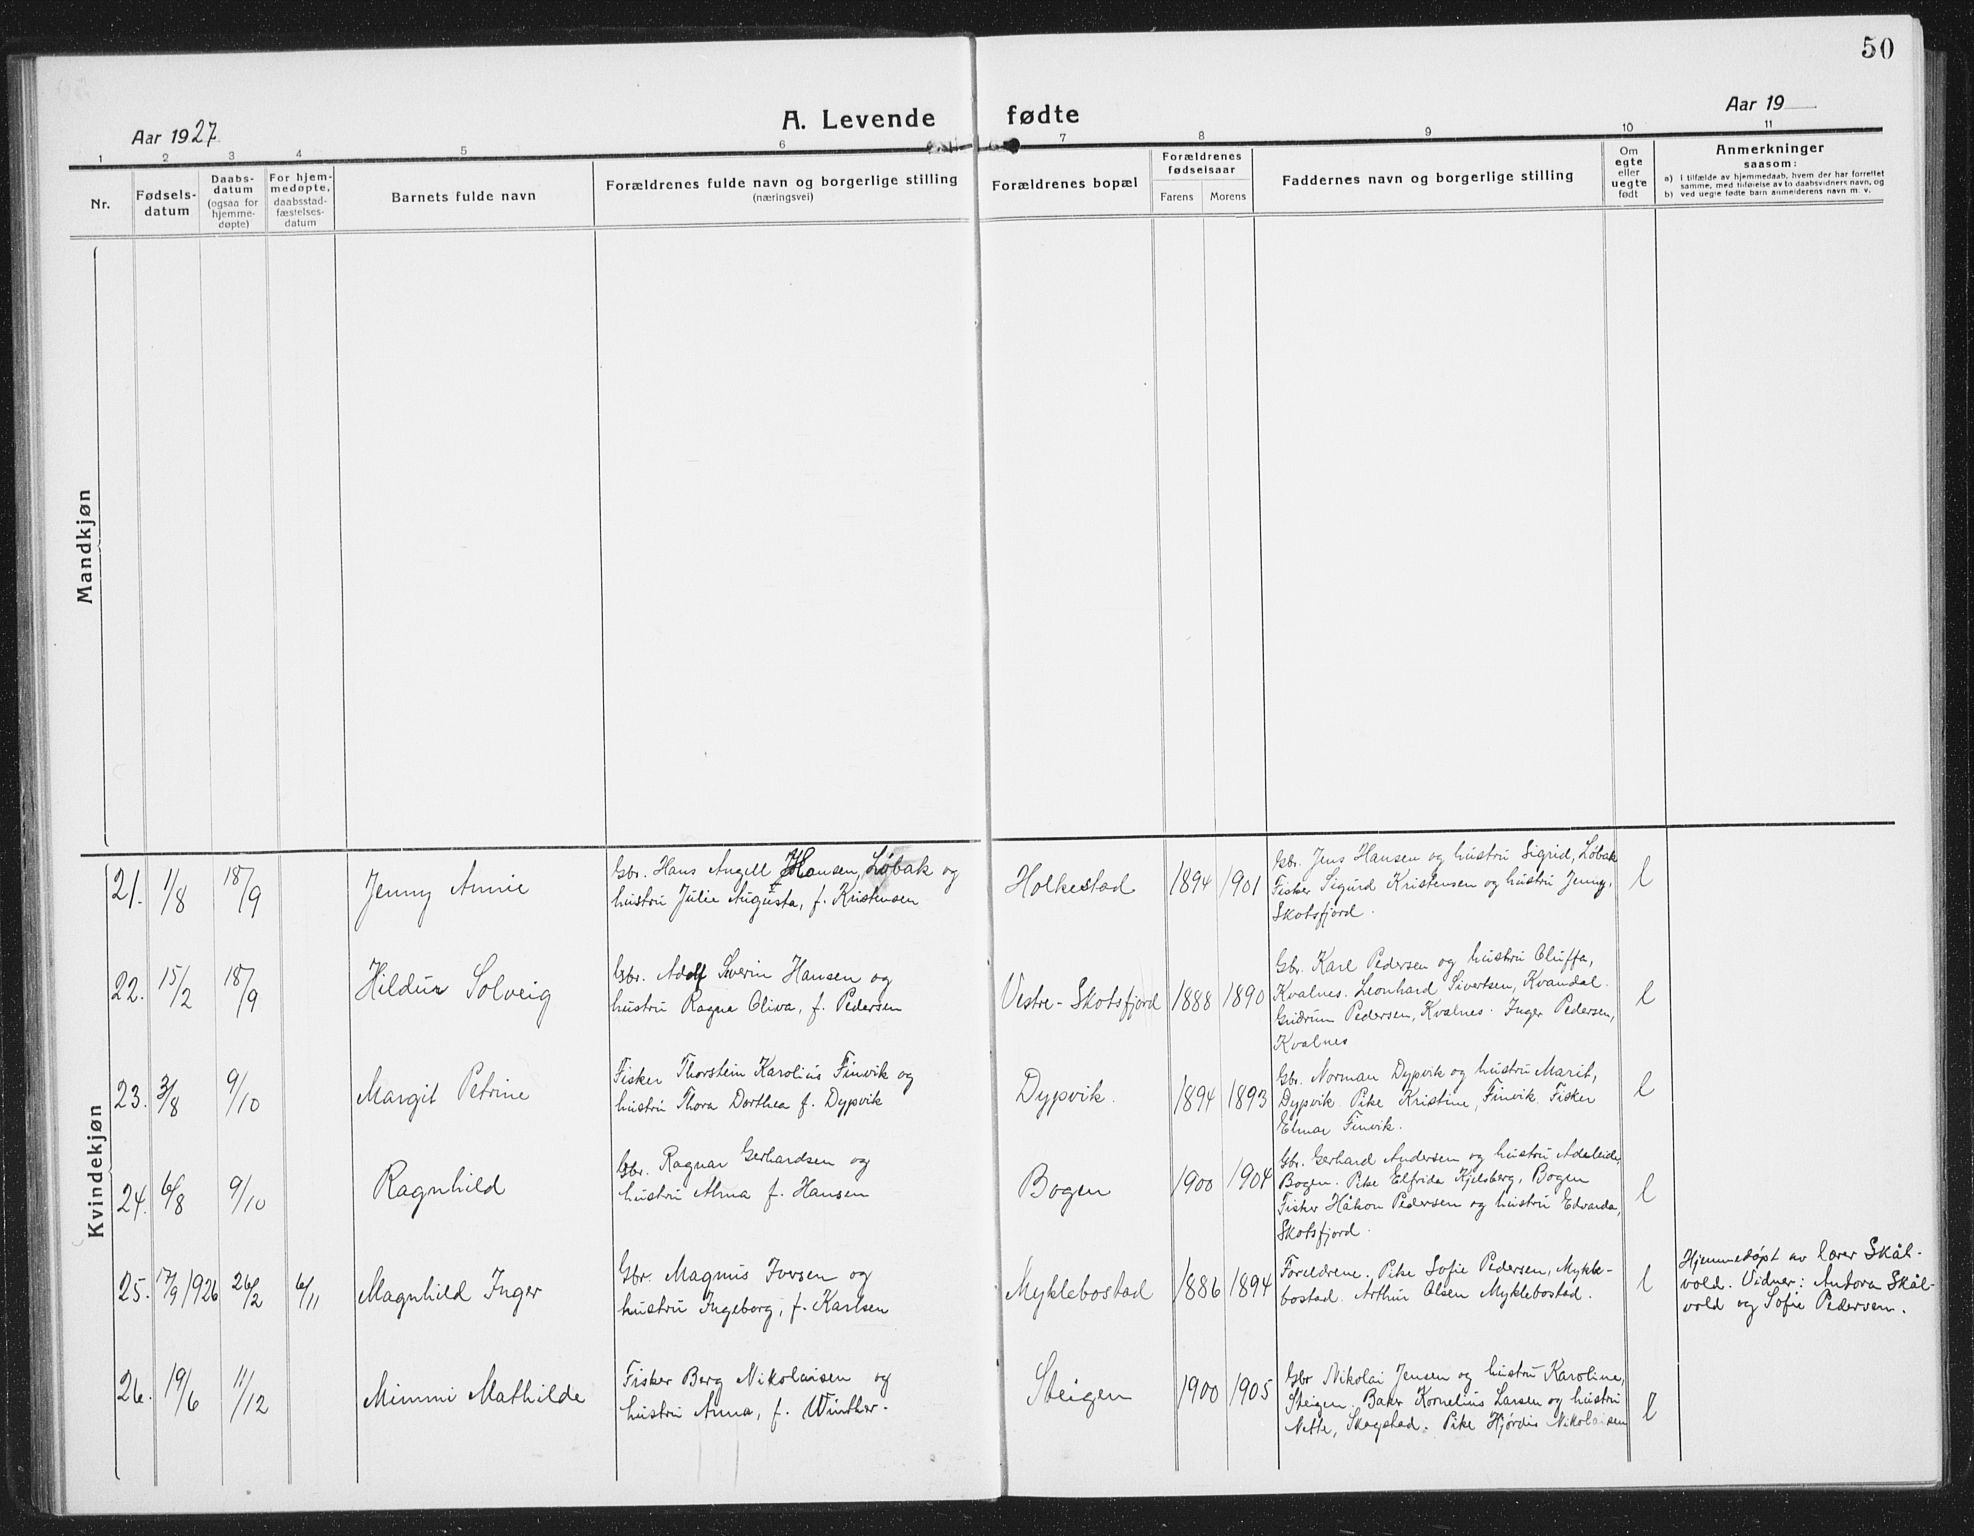 50
A. Levende fødte
Aar 1927
Aar 19
1 2 3 4 5 6 7 8 9 10 11
Nr.
Fødsels-
datum
Daabs-
datum
(ogsaa for
hjemme-
døpte)
For hjem-
medøpte,
daabsstad-
fæstelses-
datum
Barnets fulde navn
Forældrenes fulde navn og borgerlige stilling
(næringsvei)
Forældrenes bopæl
Forældrenes
fødselsaar
Farens Morens
Faddernes navn og borgerlige stilling
Om
egte
eller
uegte
født
Anmerkninger
saasom:
a) I tilfælde av hjemmedaab, hvem der har forrettet
samme, med tilføielse av to daabsvidners navn, og
b) ved uegte fødte barn anmelderens navn m. v.
Mandkjøn
Kvindekjøn
21. 1/8 18/9
Jenny Annie
Gbr. Hans Angell Hansen, Løbak og
hustru Julie Augusta, f. Kristensen
Holkestad
1894 1901
Gbr. Jens Hansen og hustru Sigrid, Løbak
Fisker Sigurd Kristensen og hustru Jenny,
Skotsfjord.
l
22. 15/2 18/9
Hildur Solveig
Gbr. Adolf Severin Hansen og
hustru Ragna Oliva, f. Pedersen
Vestre-Skotsfjord
1888 1890
Gbr. Karl Pedersen og hustru Oluffa,
Kvalnes. Leonhard Sivertsen, Kvandal.
Gudrun Pedersen, Kvalnes. Inger Pedersen,
Kvalnes
l
23. 3/8 9/10
Margit Petrine
Fisker Thorstein Karolius Finvik og
hustru Thora Dorthea f. Dypvik
Dypvik.
1894 1893
Gbr. Norman Dypvik og hustru Marit,
Dypvik. Pike Kristine, Finvik. Fisker
Elmar Finvik.
l
24. 6/8 9/10
Ragnhild
Gbr. Ragnar Gerhardsen og
hustru Alma f. Hansen
Bogen
1900 1904
Gbr. Gerhard Andersen og hustru Adeleide,
Bogen. Pike Elfrida Kjelsberg, Bogen
Fisker Håkon Pedersen og hustru Edvarda,
Skotsfjord.
l
25. 17/9 1926 26/2 6/11
Magnhild Inger
Gbr. Magnus Iversen og
hustru Ingeborg, f. Karlsen
Myklebostad
1886 1894
Foreldrene. Pike Sofie Pedersen, Mykle-
bostad. Arthur Olsen Myklebostad.
l
Hjemmedøpt av lærer Skål-
vold. Vidner: Antora Skål-
vold og Sofie Pedersen.
26. 19/6 11/12
Mimmi Mathilde
Fisker Berg Nikolaisen og
hustru Anna, f. Winther.
Steigen
1900 1905
Gbr Nikolai Jensen og hustru Karoline,
Steigen. Baker Kornelius Larsen og hustru
Nette, Skagstad. Pike Hjørdis Nikolaisen
l